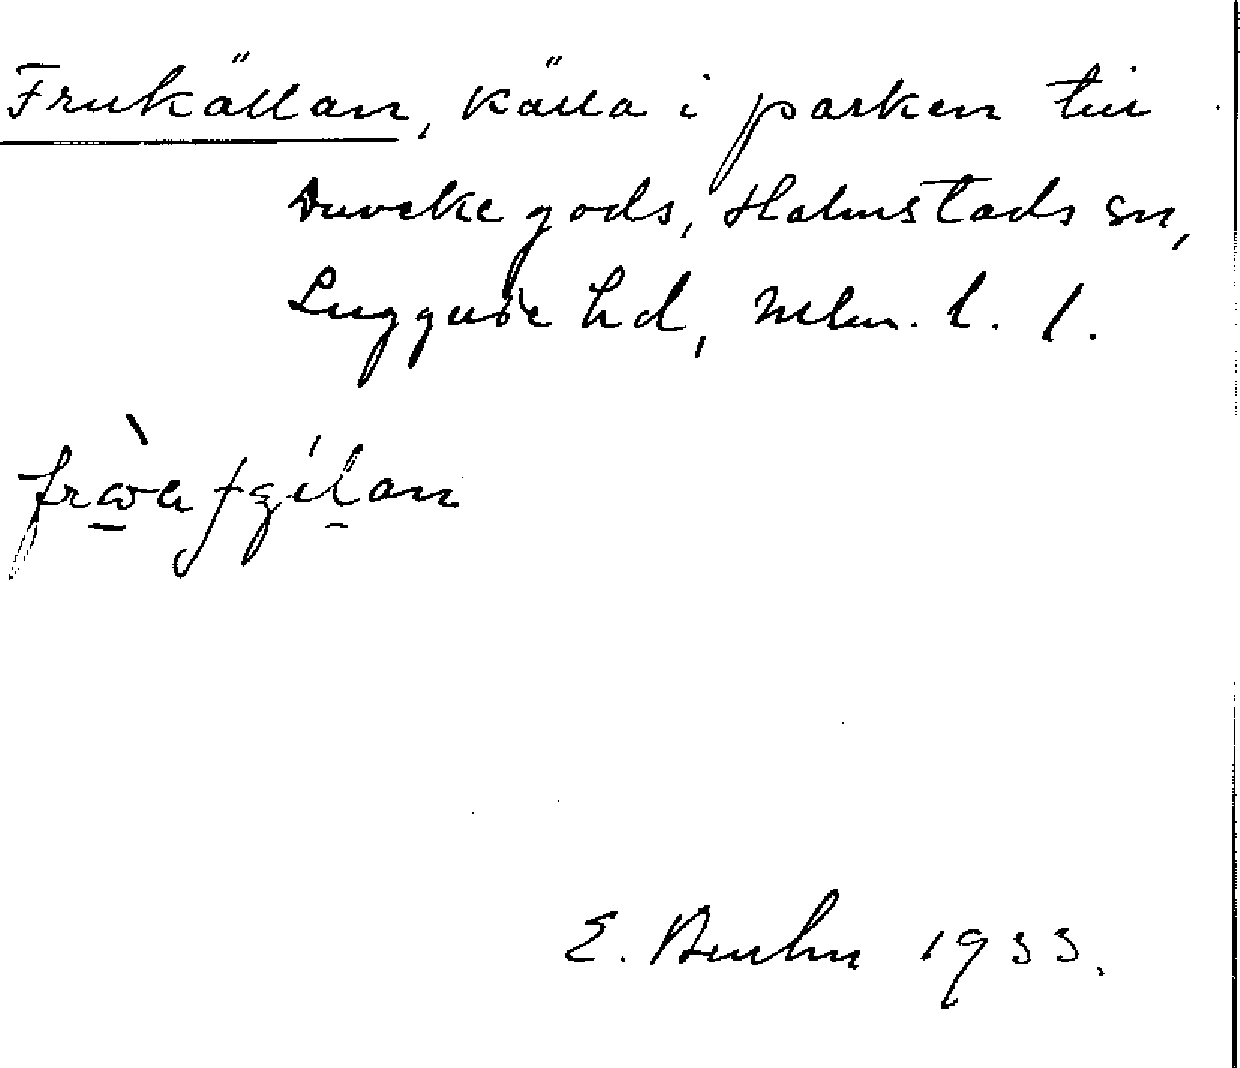 Frukällan, källa i parken till
Duveke gods, Halmstads sn,
Luggude hd, Mlm. l. l.
E. Bruhn 1933.